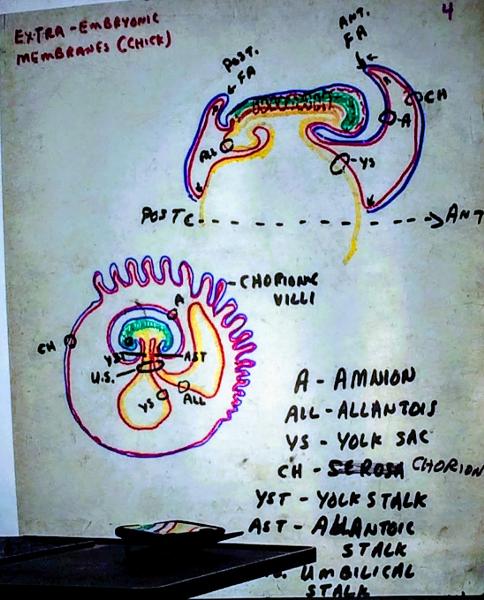 EXTRA-EMBRYONIC
MEMBRANES (CHICK)
4
POST.
FA
ANT.
FA
CH
A
ALL
YS
POST
ANT
CHORIONIC
VILLI
A
CH
YST
AST
U.S.
ALL
YS
A - AMNION
ALL - ALLANTOIS
YS - YOLK SAC
CH - SEROSA CHORION
YST - YOLK STALK
AST - ALLANTOIC
STALK
UMBILICAL
STALK